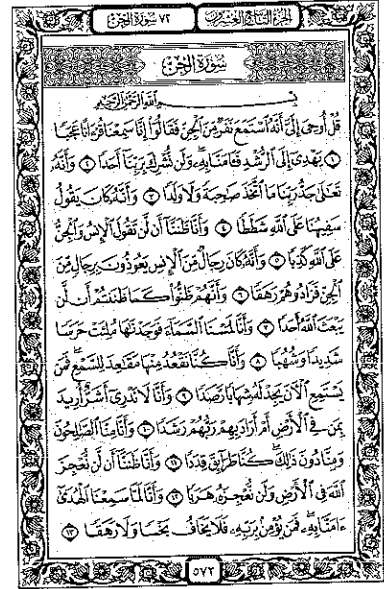 الجزء التاسع والعشرون ٧٢ سورة الجن
سُورَةُ الجِنّ
بِسْمِ اللَّهِ الرَّحْمَٰنِ الرَّحِيمِ
قُلْ أُوحِيَ إِلَيَّ أَنَّهُ ٱسْتَمَعَ نَفَرٌ مِّنَ ٱلْجِنِّ فَقَالُوٓا۟ إِنَّا سَمِعْنَا قُرْءَانًا عَجَبًا
١ يَهْدِىٓ إِلَى ٱلرُّشْدِ فَـَٔامَنَّا بِهِۦ وَلَن نُّشْرِكَ بِرَبِّنَآ أَحَدًا ٢ وَأَنَّهُۥ
تَعَٰلَىٰ جَدُّ رَبِّنَا مَا ٱتَّخَذَ صَٰحِبَةً وَلَا وَلَدًا ٣ وَأَنَّهُۥ كَانَ يَقُولُ
سَفِيهُنَا عَلَى ٱللَّهِ شَطَطًا ٤ وَأَنَّا ظَنَنَّآ أَن لَّن تَقُولَ ٱلْإِنسُ وَٱلْجِنُّ
عَلَى ٱللَّهِ كَذِبًا ٥ وَأَنَّهُۥ كَانَ رِجَالٌ مِّنَ ٱلْإِنسِ يَعُوذُونَ بِرِجَالٍ مِّنَ
ٱلْجِنِّ فَزَادُوهُمْ رَهَقًا ٦ وَأَنَّهُمْ ظَنُّوا۟ كَمَا ظَنَنتُمْ أَن لَّن
يَبْعَثَ ٱللَّهُ أَحَدًا ٧ وَأَنَّا لَمَسْنَا ٱلسَّمَآءَ فَوَجَدْنَٰهَا مُلِئَتْ حَرَسًا
شَدِيدًا وَشُهُبًا ٨ وَأَنَّا كُنَّا نَقْعُدُ مِنْهَا مَقَٰعِدَ لِلسَّمْعِ فَمَن
يَسْتَمِعِ ٱلْـَٔانَ يَجِدْ لَهُۥ شِهَابًا رَّصَدًا ٩ وَأَنَّا لَا نَدْرِىٓ أَشَرٌّ أُرِيدَ
بِمَن فِى ٱلْأَرْضِ أَمْ أَرَادَ بِهِمْ رَبُّهُمْ رَشَدًا ١٠ وَأَنَّا مِنَّا ٱلصَّٰلِحُونَ
وَمِنَّا دُونَ ذَٰلِكَ كُنَّا طَرَآئِقَ قِدَدًا ١١ وَأَنَّا ظَنَنَّآ أَن لَّن نُّعْجِزَ
ٱللَّهَ فِى ٱلْأَرْضِ وَلَن نُّعْجِزَهُۥ هَرَبًا ١٢ وَأَنَّا لَمَّا سَمِعْنَا ٱلْهُدَىٰٓ
ءَامَنَّا بِهِۦ فَمَن يُؤْمِنۢ بِرَبِّهِۦ فَلَا يَخَافُ بَخْسًا وَلَا رَهَقًا ١٣
٥٧٢